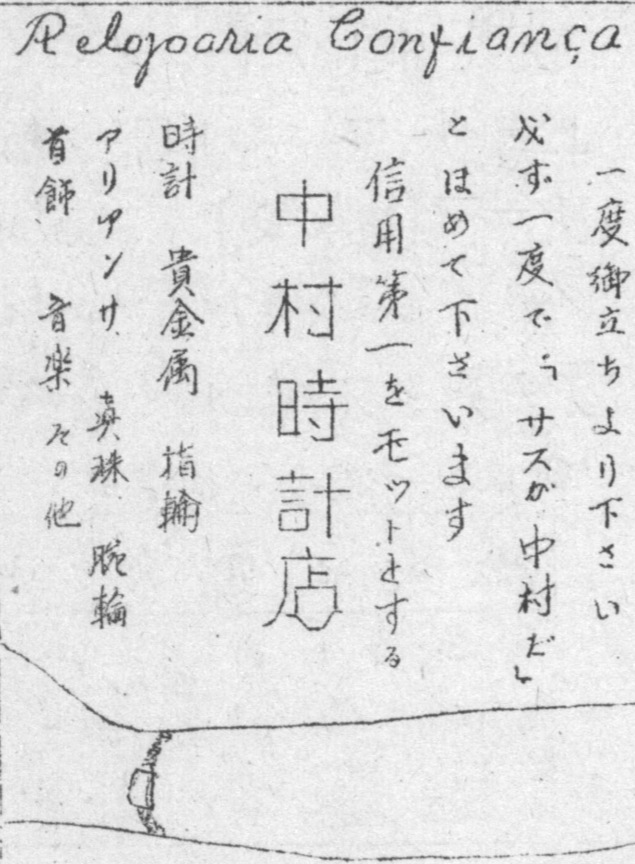 Relojoaria Confiança
一度御立ちより下さい
必ず一度で「サスガ中村だ」
とほめて下さいます
信用第一をモットとする
中村時計店
時計 貴金属 指輪
アリアンサ 真珠 腕輪
首飾 音楽 その他